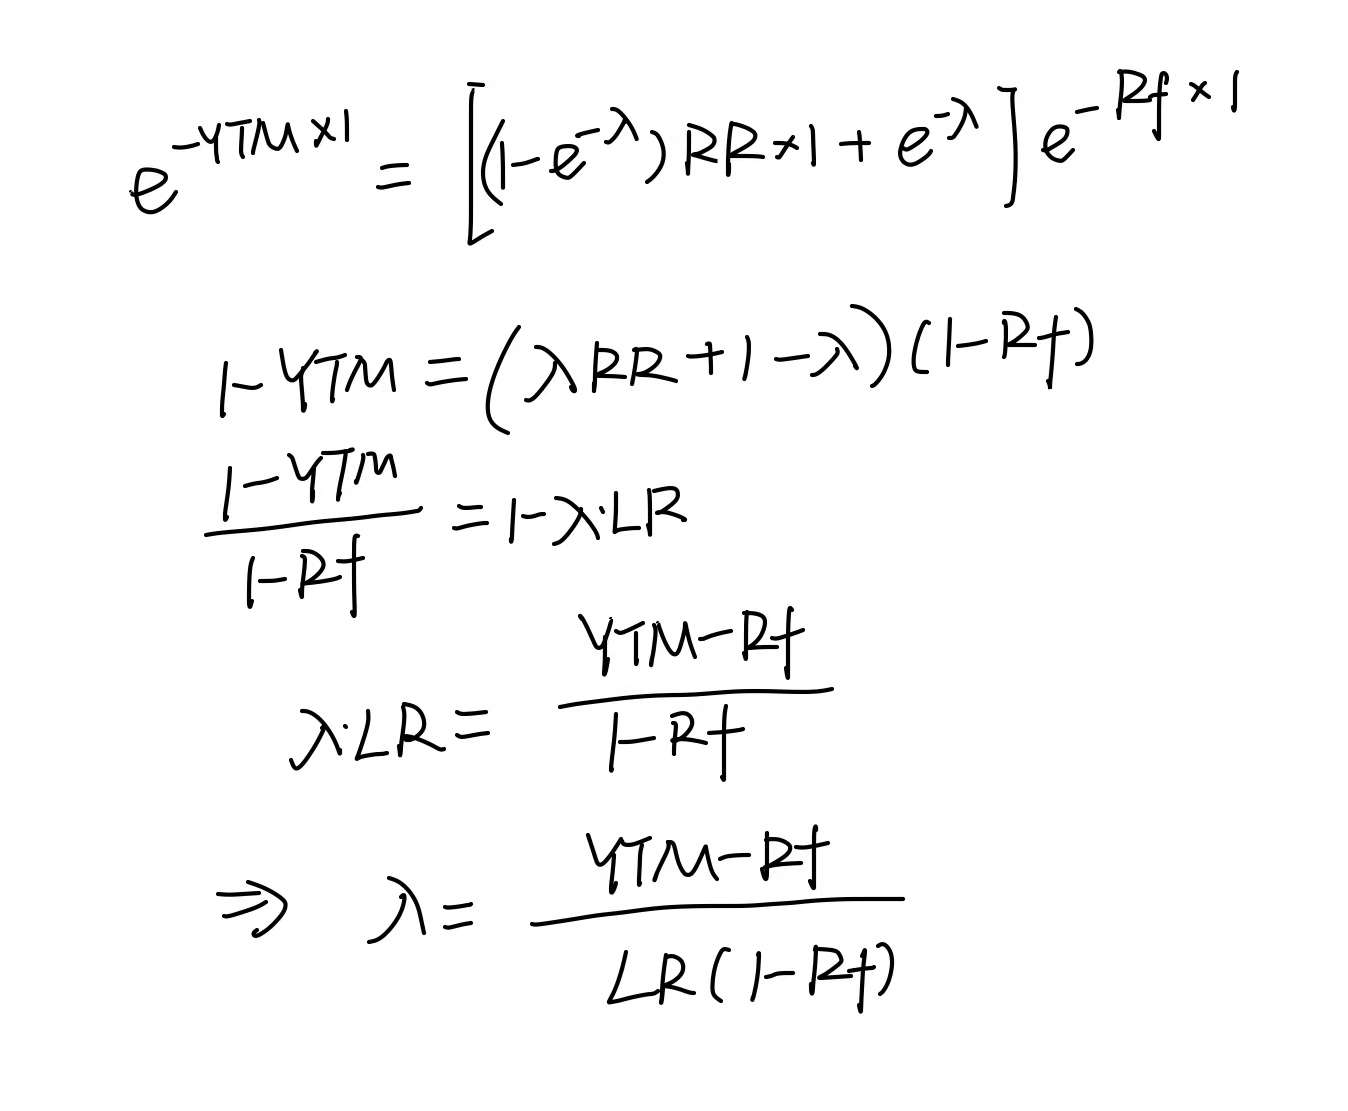 e^{-YTM×1} = [(1-e^{-λ})RR×1+e^{-λ}]e^{-Rf×1}
1-YTM=(λRR+1-λ)(1-Rf)
\frac{1-YTM}{1-Rf}=1-λ·LR
λ·LR=\frac{YTM-Rf}{1-Rf}
⇒ λ=\frac{YTM-Rf}{LR(1-Rf)}